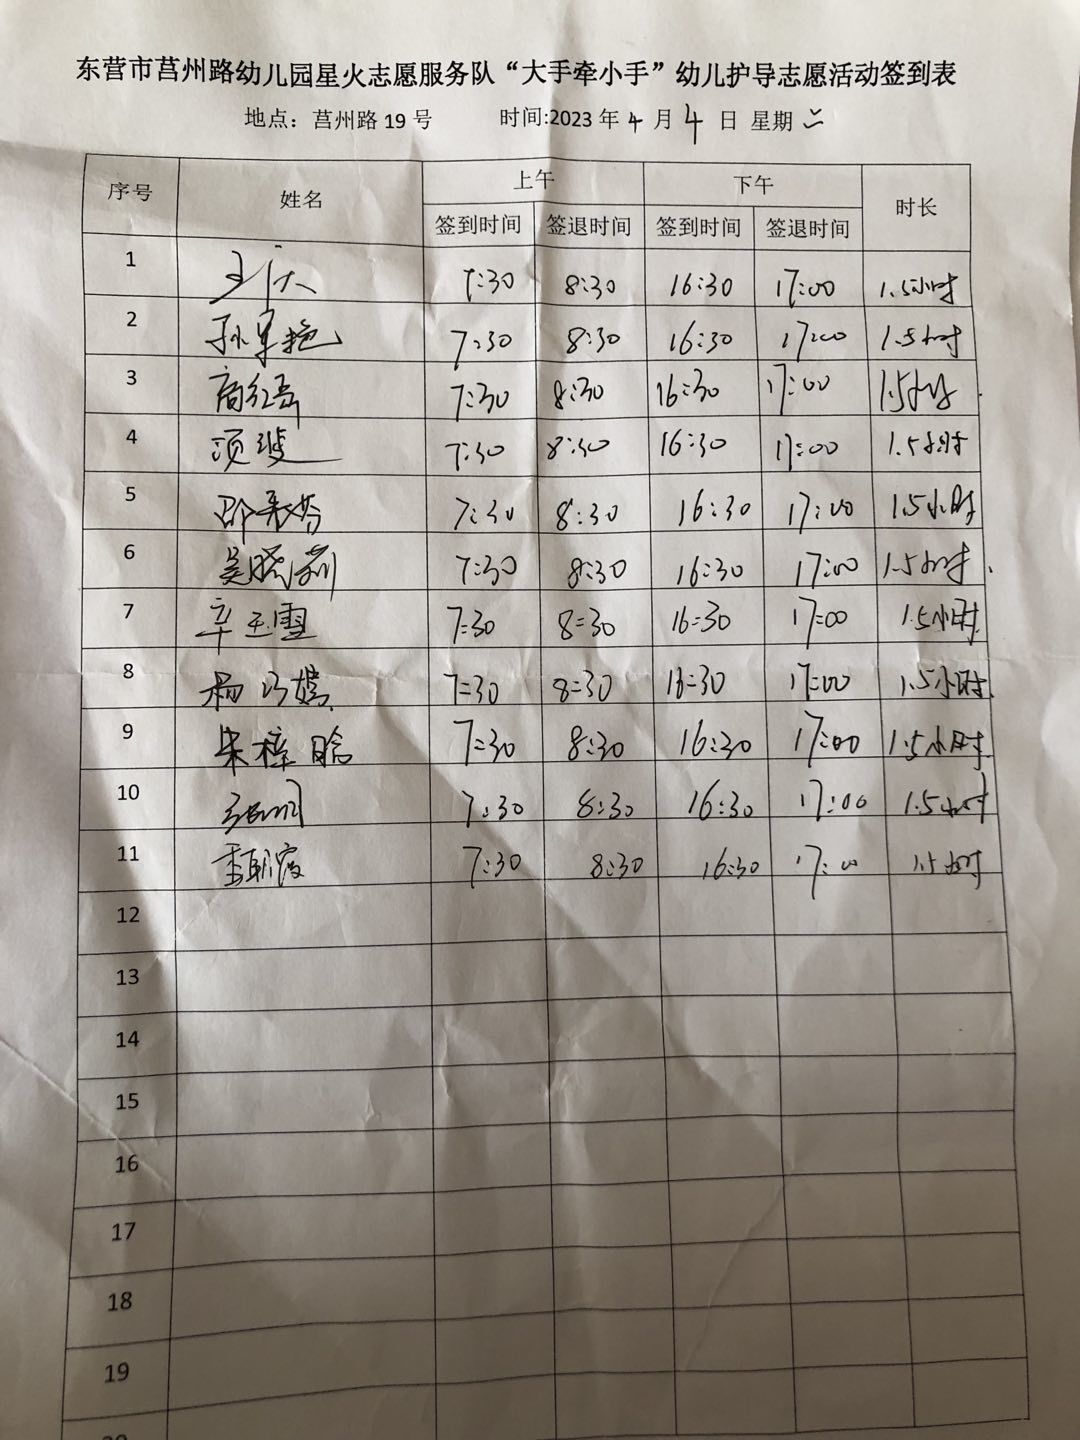 东营市莒州路幼儿园星火志愿服务队“大手牵小手”幼儿护导志愿活动签到表
地点：莒州路19号 时间:2023年4月4日 星期二
序号 姓名 上午 下午 时长
签到时间 签退时间 签到时间 签退时间
1 7:30 8:30 16:30 17:00 1.5小时
2 孙军艳 7:30 8:30 16:30 17:00 1.5小时
3 7:30 8:30 16:30 17:00 1.5小时
4 7:30 8:30 16:30 17:00 1.5小时
5 7:30 8:30 16:30 17:00 1.5小时
6 吴晓莉 7:30 8:30 16:30 17:00 1.5小时
7 辛玉雪 7:30 8:30 16:30 17:00 1.5小时
8 杨巧嫱 7:30 8:30 16:30 17:00 1.5小时
9 朱梓晗 7:30 8:30 16:30 17:00 1.5小时
10 7:30 8:30 16:30 17:00 1.5小时
11 7:30 8:30 16:30 17:00 1.5小时
12
13
14
15
16
17
18
19